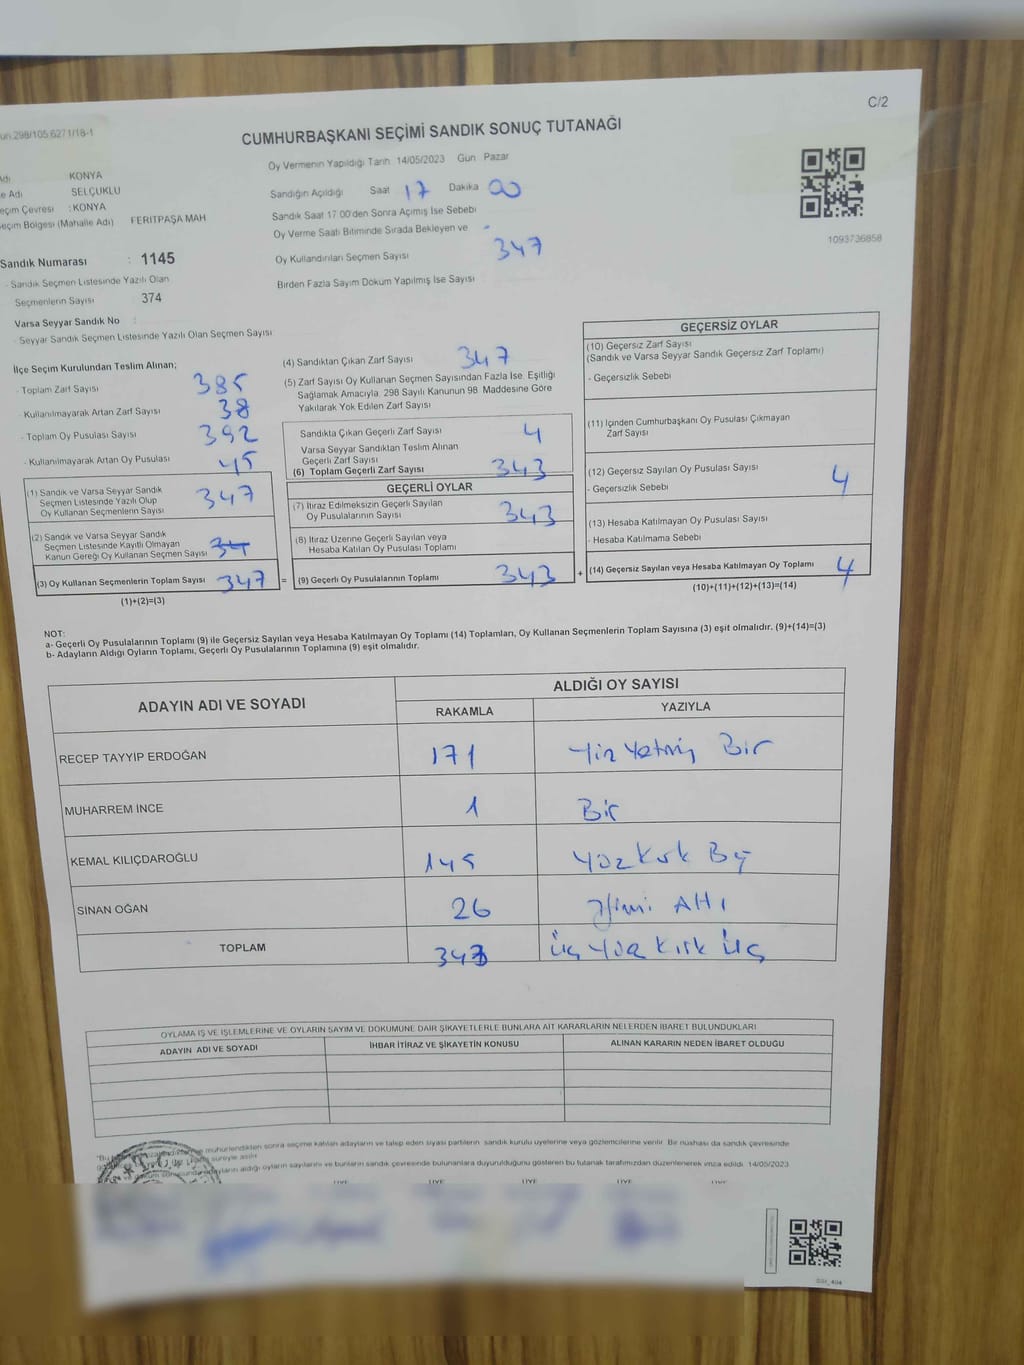 C/2
298/105.6271/18-1
CUMHURBAŞKANI SEÇİMİ SANDIK SONUÇ TUTANAĞI
Oy Vermenin Yapıldığı Tarih 14/05/2023 Gün Pazar
KONYA
e Adı SELÇUKLU
eçim Çevresi : KONYA
eçim Bölgesi (Mahalle Adı) FERİTPAŞA MAH
Sandığın Açıldığı Saat 17 Dakika 00
Sandık Saat 17.00'den Sonra Açımış İse Sebebi
Oy Verme Saati Bitiminde Sırada Bekleyen ve -
Oy Kullandırılan Seçmen Sayısı 347
Birden Fazla Sayım Döküm Yapılmış İse Sayısı
1093736858
Sandık Numarası : 1145
- Sandık Seçmen Listesinde Yazılı Olan
Seçmenlerin Sayısı 374
Varsa Seyyar Sandık No :
- Seyyar Sandık Seçmen Listesinde Yazılı Olan Seçmen Sayısı
İlçe Seçim Kurulundan Teslim Alınan;
- Toplam Zarf Sayısı 385
- Kullanılmayarak Artan Zarf Sayısı 38
- Toplam Oy Pusulası Sayısı 392
- Kullanılmayarak Artan Oy Pusulası 45
(1) Sandık ve Varsa Seyyar Sandık
Seçmen Listesinde Yazılı Olup
Oy Kullanan Seçmenlerin Sayısı 347
(2) Sandık ve Varsa Seyyar Sandık
Seçmen Listesinde Kayıtlı Olmayan
Kanun Gereği Oy Kullanan Seçmen Sayısı
(3) Oy Kullanan Seçmenlerin Toplam Sayısı 347 =
(1)+(2)=(3)
(4) Sandıktan Çıkan Zarf Sayısı 347
(5) Zarf Sayısı Oy Kullanan Seçmen Sayısından Fazla İse, Eşitliği
Sağlamak Amacıyla, 298 Sayılı Kanunun 98. Maddesine Göre
Yakılarak Yok Edilen Zarf Sayısı
Sandıkta Çıkan Geçerli Zarf Sayısı 4
Varsa Seyyar Sandıktan Teslim Alınan
Geçerli Zarf Sayısı
(6) Toplam Geçerli Zarf Sayısı 343
GEÇERLİ OYLAR
(7) İtiraz Edilmeksizin Geçerli Sayılan
Oy Pusulalarının Sayısı 343
(8) İtiraz Üzerine Geçerli Sayılan veya
Hesaba Katılan Oy Pusulası Toplamı
(9) Geçerli Oy Pusulalarının Toplamı 343 +
GEÇERSİZ OYLAR
(10) Geçersiz Zarf Sayısı
(Sandık ve Varsa Seyyar Sandık Geçersiz Zarf Toplamı)
- Geçersizlik Sebebi
(11) İçinden Cumhurbaşkanı Oy Pusulası Çıkmayan
Zarf Sayısı
(12) Geçersiz Sayılan Oy Pusulası Sayısı 4
- Geçersizlik Sebebi
(13) Hesaba Katılmayan Oy Pusulası Sayısı
- Hesaba Katılmama Sebebi
(14) Geçersiz Sayılan veya Hesaba Katılmayan Oy Toplamı 4
(10)+(11)+(12)+(13)=(14)
NOT:
a- Geçerli Oy Pusulalarının Toplamı (9) ile Geçersiz Sayılan veya Hesaba Katılmayan Oy Toplamı (14) Toplamları, Oy Kullanan Seçmenlerin Toplam Sayısına (3) eşit olmalıdır. (9)+(14)=(3)
b- Adayların Aldığı Oyların Toplamı, Geçerli Oy Pusulalarının Toplamına (9) eşit olmalıdır.
ADAYIN ADI VE SOYADI ALDIĞI OY SAYISI
RAKAMLA YAZIYLA
RECEP TAYYİP ERDOĞAN 171 Yüz Yetmiş Bir
MUHARREM İNCE 1 Bir
KEMAL KILIÇDAROĞLU 145 Yüz Kırk Beş
SİNAN OĞAN 26 Yirmi Altı
TOPLAM 343 Üç Yüz Kırk Üç
OYLAMA İŞ VE İŞLEMLERİNE VE OYLARIN SAYIM VE DÖKÜMÜNE DAİR ŞİKAYETLERLE BUNLARA AİT KARARLARIN NELERDEN İBARET BULUNDUKLARI
ADAYIN ADI VE SOYADI İHBAR İTİRAZ VE ŞİKAYETİN KONUSU ALINAN KARARIN NEDEN İBARET OLDUĞU
mühürlendikten sonra seçime katılan adayların ve talep eden siyasi partilerin sandık kurulu üyelerine veya gözlemcilerine verilir. Bir nüshası da sandık çevresinde
süreyle asılır.
aldığı oyların sayılarını ve bunların sandık çevresinde bulunanlara duyurulduğunu gösteren bu tutanak tarafımızdan düzenlenerek imza edildi. 14/05/2023
ÜYE ÜYE ÜYE ÜYE ÜYE